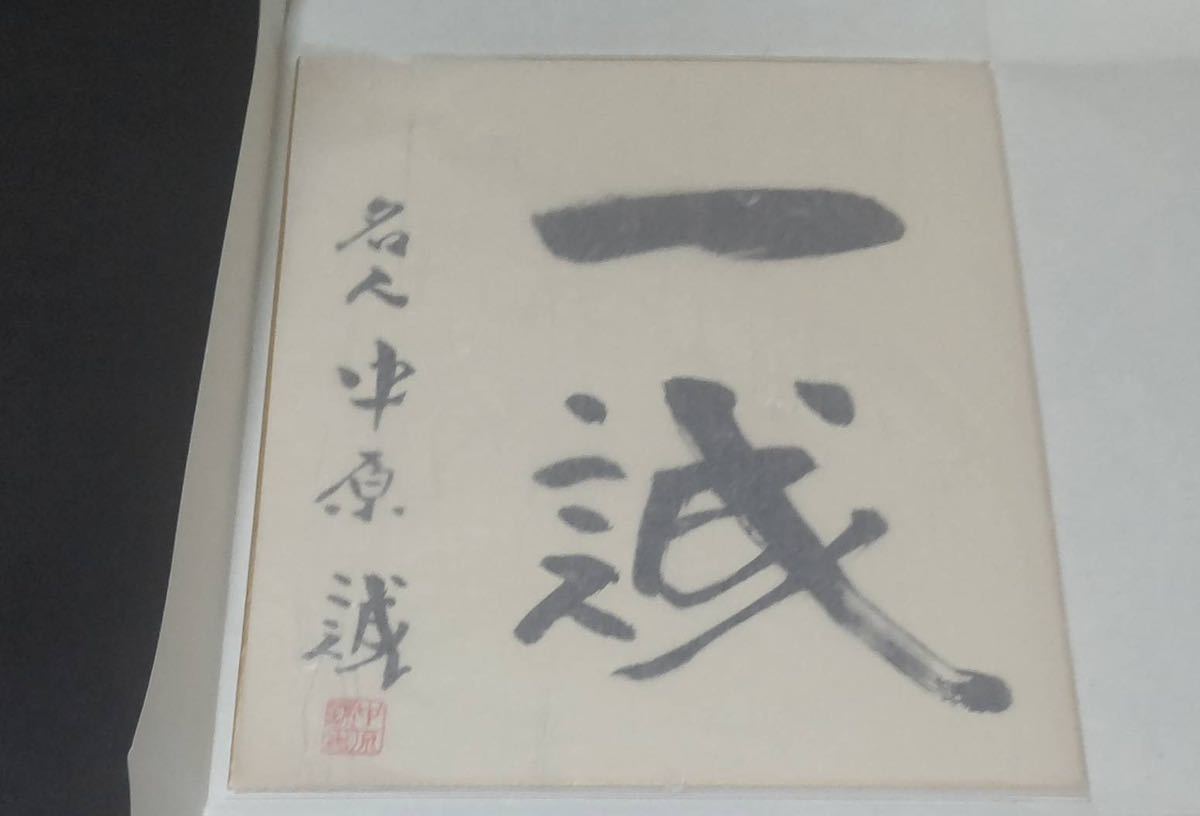 一誠
名人 中原 誠